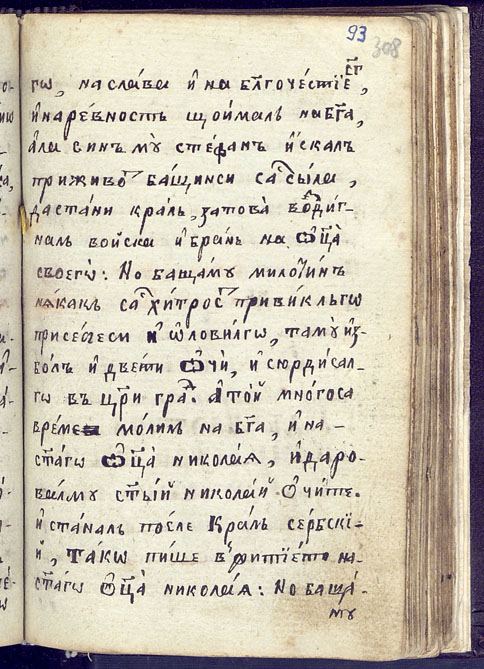 93
308
гѡ, на слава и҆ на бл҃гочестїе,
и҆ на ревность що и҆малъ на бг҃а,
а҆ла синъ мꙋ стефанъ и҆скалъ
при живоⷮ бащинси саⷭ҇ сыла,
да стани краль, затова воⷥдиг-
налъ войска и҆ брань на ѻц҃а
своегѡ: Но баща мꙋ милютинъ
някакъ саⷭ хитросⷮ привикль гѡ
при себеси и҆ ѡловил гѡ, та мꙋ и҆з-
болъ и҆ двети ѻчи, и҆ сюрдисал-
гѡ въ цр҃и граⷣ. а҆ той многоса
време молилъ на бг҃а, и҆ на
ст҃аго ѻц҃а николая, и҆ даро-
валмꙋ ст҃ый николай ѻчите.
и҆ станалъ после Краль сербскї-
й, такѡ пише в житїето на
ст҃аго ѻц҃а николая: Но баща
мꙋ